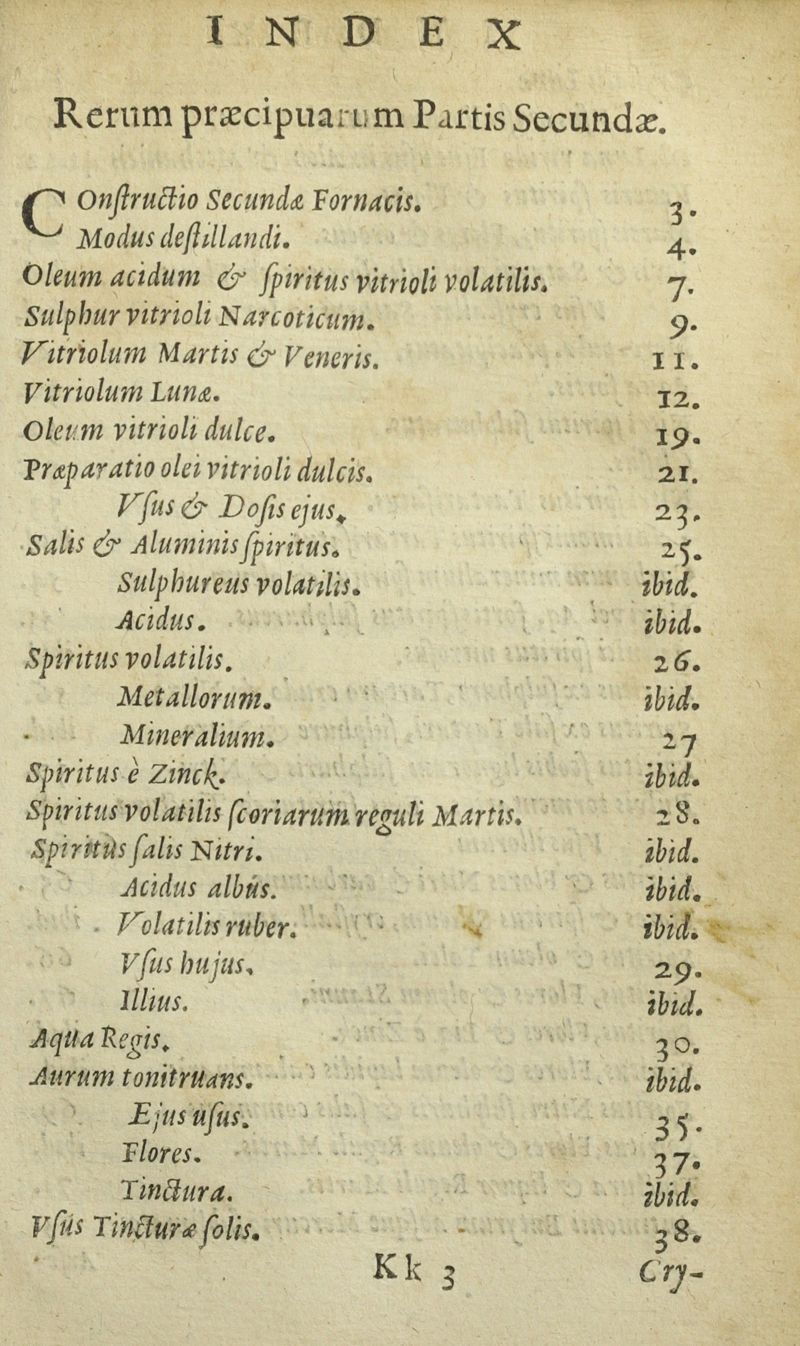 INDEX
Rerum præcipuarum Partis Secundæ.
COnſtructio Secundæ Fornacis. 3.
Modus deſtillandi. 4.
Oleum acidum & ſpiritus vitrioli volatilis. 7.
Sulphur vitrioli Narcoticum. 9.
Vitriolum Martis & Veneris. 11.
Vitriolum Lunæ. 12.
Oleum vitrioli dulce. 19.
Præparatio olei vitrioli dulcis. 21.
Vſus & Doſis ejus. 23.
Salis & Aluminis ſpiritus. 25.
Sulphureus volatilis. ibid.
Acidus. ibid.
Spiritus volatilis. 26.
Metallorum. ibid.
Mineralium. 27
Spiritus è Zinck. ibid.
Spiritus volatilis ſcoriarum reguli Martis. 28.
Spiritus ſalis Nitri. ibid.
Acidus albus. ibid.
Volatilis ruber. ibid.
Vſus hujus. 29.
Illius. ibid.
Aqua Regis. 30.
Aurum tonitruans. ibid.
Ejus uſus. 35.
Flores. 37.
Tinctura. ibid.
Vſus Tincturæ ſolis. 38.
Kk 3 Cry-